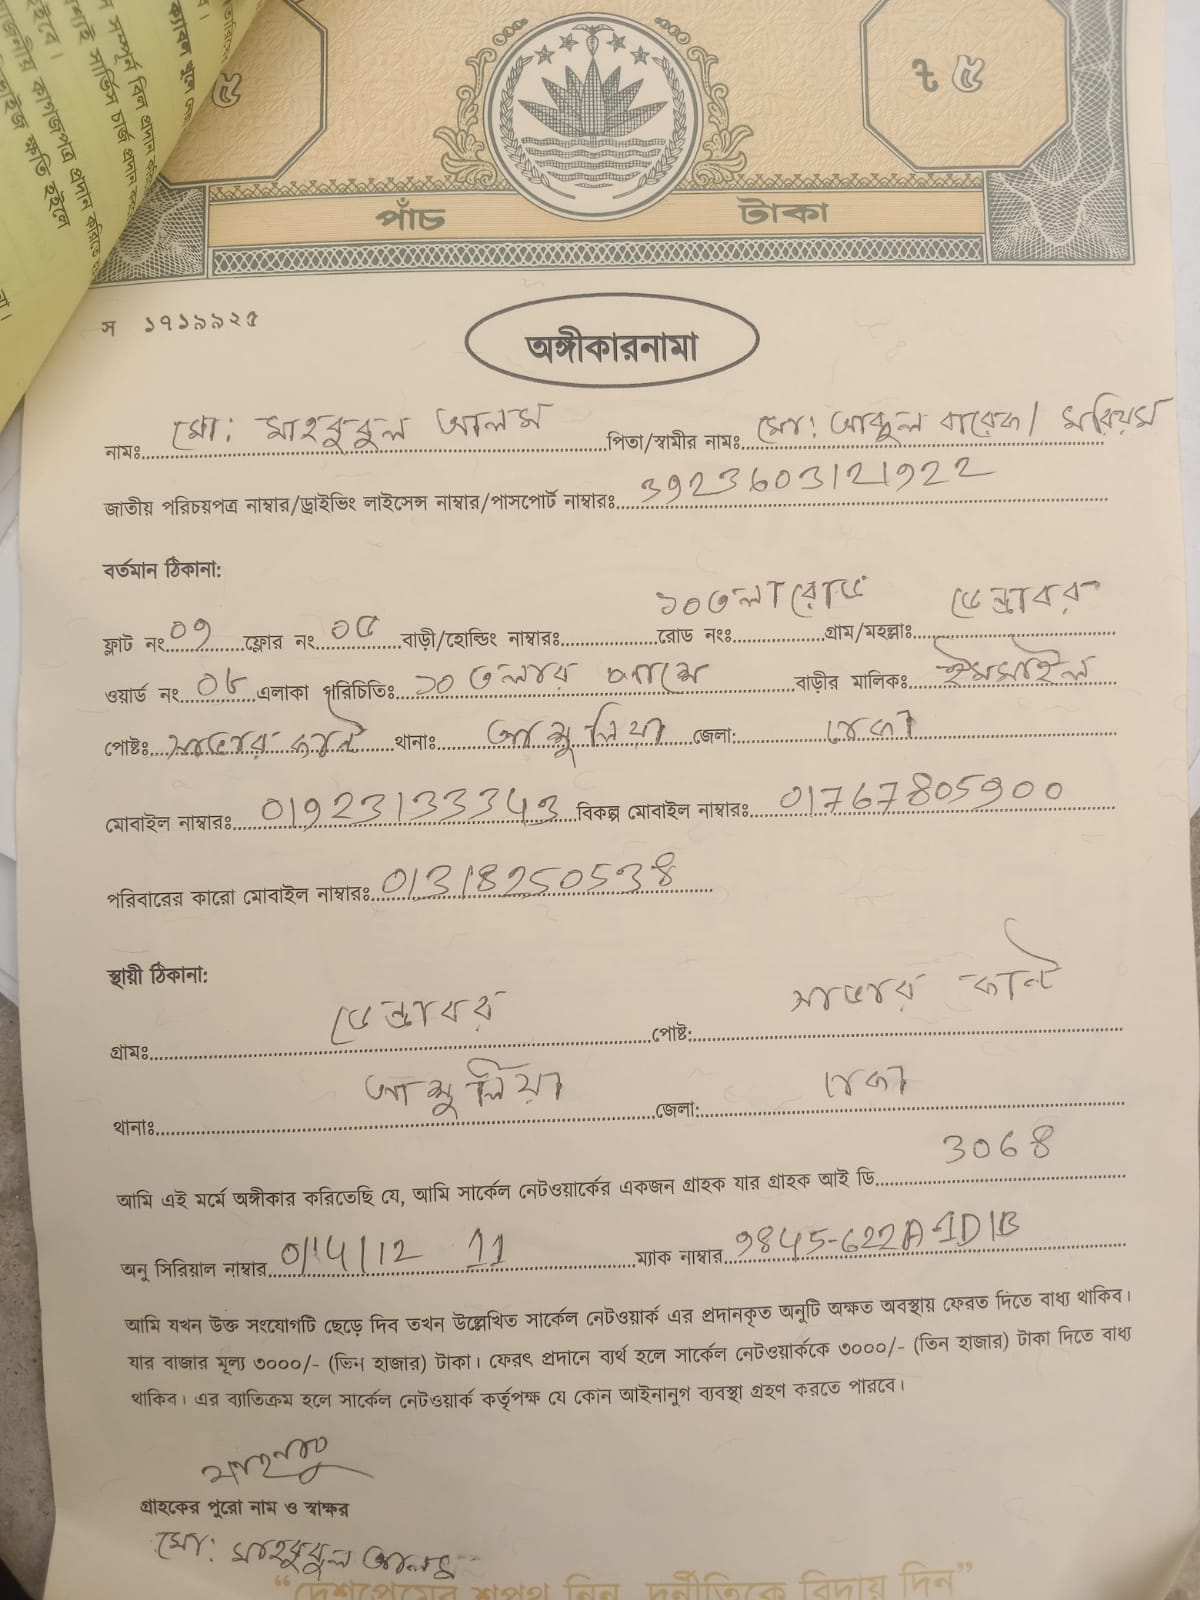 ৳ ৫
পাঁচ টাকা
স ১৭১৯৯২৫
অঙ্গীকারনামা
নামঃ মো: মাহবুবুল আলম পিতা/স্বামীর নামঃ মো: আব্দুল বারেক/ মরিয়ম
জাতীয় পরিচয়পত্র নাম্বার/ড্রাইভিং লাইসেন্স নাম্বার/পাসপোর্ট নাম্বারঃ 3923603121922
বর্তমান ঠিকানা:
ফ্লাট নং ০৭ ফ্লোর নং ০৫ বাড়ী/হোল্ডিং নাম্বারঃ রোড নংঃ ১০তলা রোড গ্রাম/মহল্লাঃ ডেন্ডাবর
ওয়ার্ড নং ০৮ এলাকা পরিচিতিঃ ১০ তলার বাড়ীর মালিকঃ ইসমাইল
পোষ্টঃ সাভার ক্যান্ট থানাঃ আশুলিয়া জেলা: ঢাকা
মোবাইল নাম্বারঃ 01923133343 বিকল্প মোবাইল নাম্বারঃ 01767805900
পরিবারের কারো মোবাইল নাম্বারঃ 01318250538
স্থায়ী ঠিকানা:
গ্রামঃ ডেন্ডাবর পোষ্ট: সাভার ক্যান্ট
থানাঃ আশুলিয়া জেলা: ঢাকা
আমি এই মর্মে অঙ্গীকার করিতেছি যে, আমি সার্কেল নেটওয়ার্কের একজন গ্রাহক যার গ্রাহক আই ডি 3068
অনু সিরিয়াল নাম্বার 0/14/12 11 ম্যাক নাম্বার 9845-622A1D1B
আমি যখন উক্ত সংযোগটি ছেড়ে দিব তখন উল্লেখিত সার্কেল নেটওয়ার্ক এর প্রদানকৃত অনুটি অক্ষত অবস্থায় ফেরত দিতে বাধ্য থাকিব।
যার বাজার মূল্য ৩০০০/- (তিন হাজার) টাকা। ফেরৎ প্রদানে ব্যর্থ হলে সার্কেল নেটওয়ার্ককে ৩০০০/- (তিন হাজার) টাকা দিতে বাধ্য
থাকিব। এর ব্যাতিক্রম হলে সার্কেল নেটওয়ার্ক কর্তৃপক্ষ যে কোন আইনানুগ ব্যবস্থা গ্রহণ করতে পারবে।
গ্রাহকের পুরো নাম ও স্বাক্ষর
মো: মাহবুবুল আলম
“দেশপ্রেমের শপথ নিন, দুর্নীতিকে বিদায় দিন”